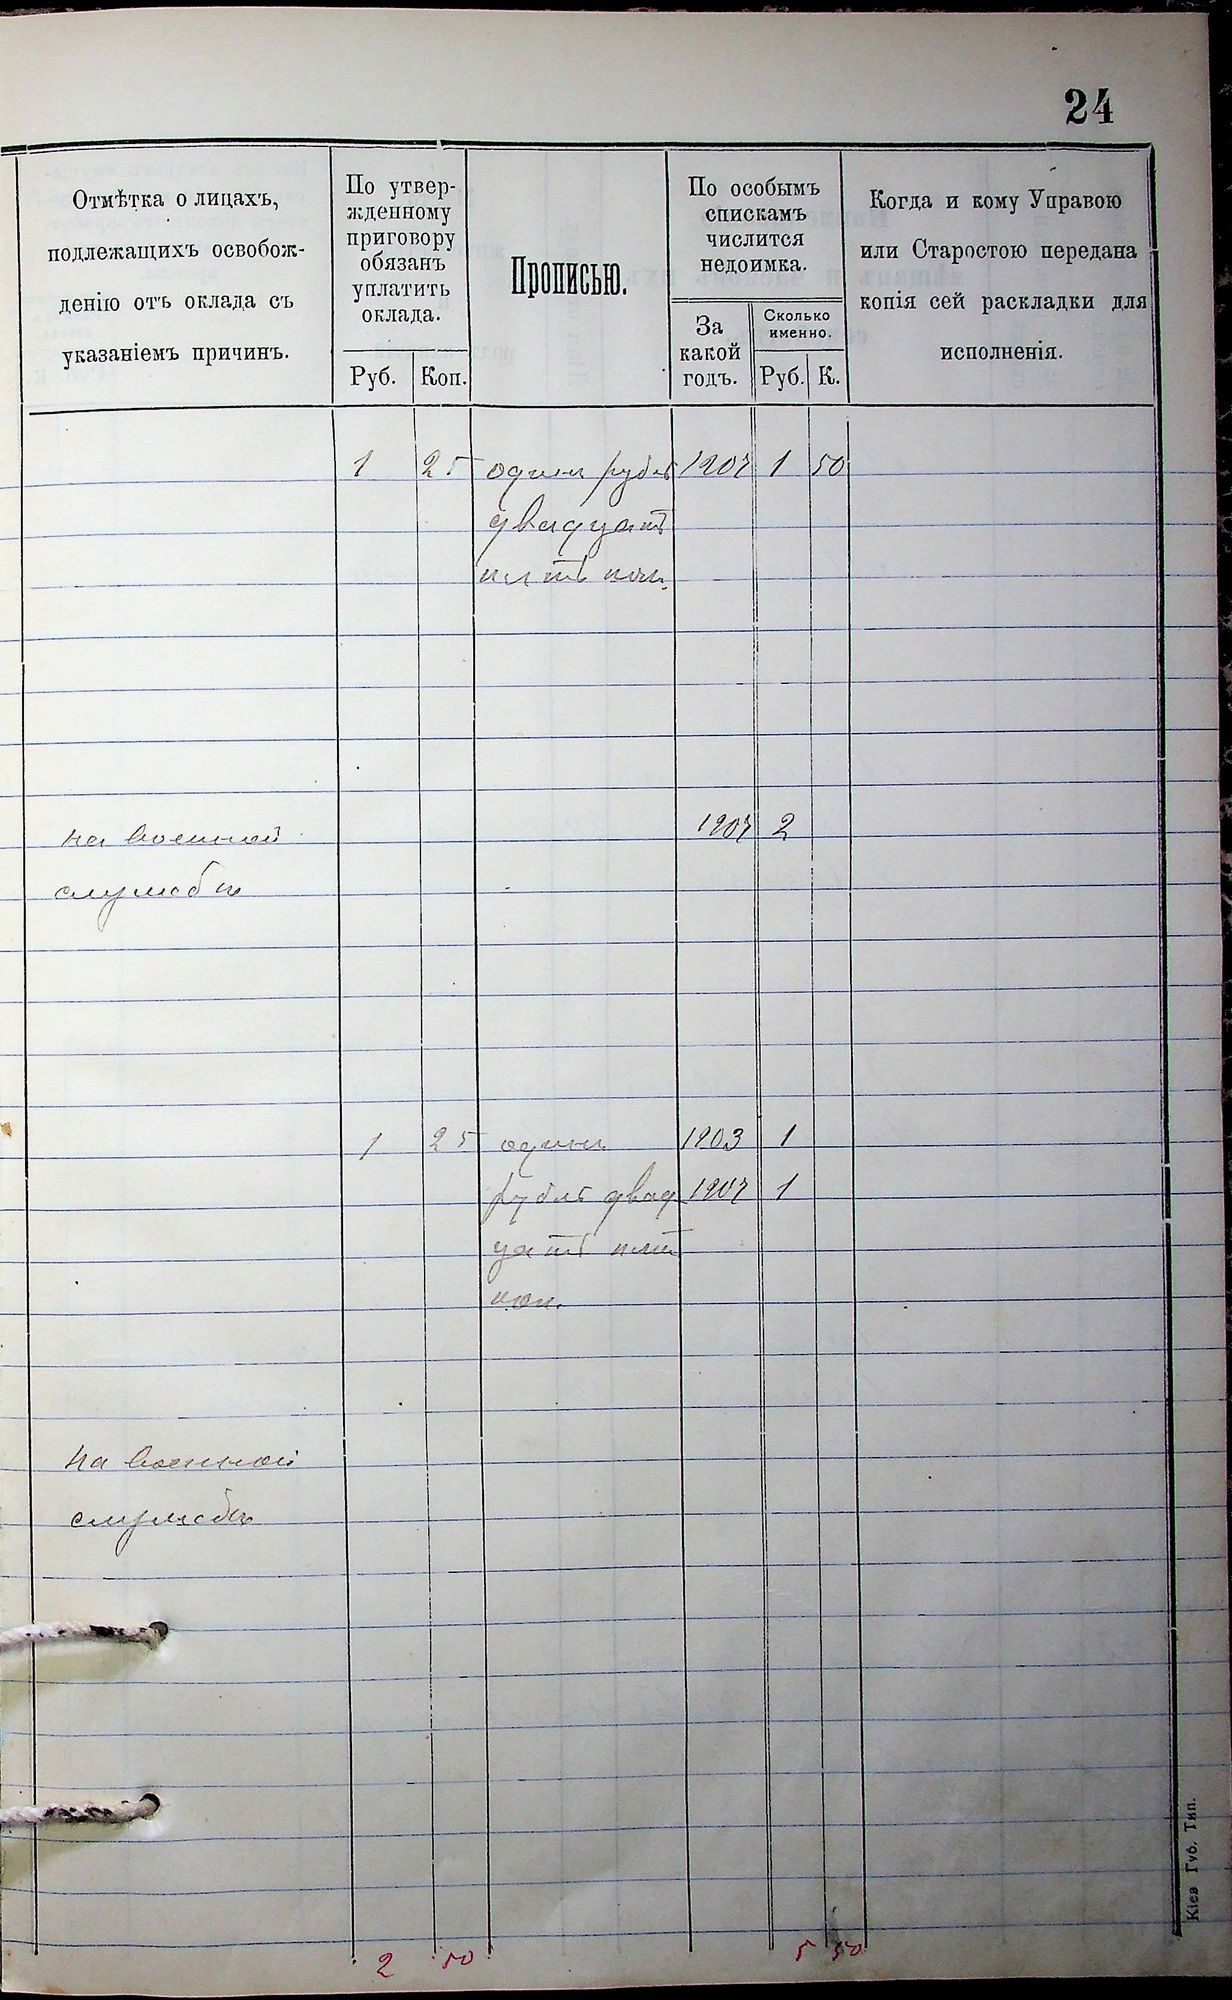 24
Отмѣтка о лицахъ,
подлежащихъ освобож-
денію отъ оклада съ
указаніемъ причинъ.
По утвер-
жденному
приговору
обязанъ
уплатить
оклада.
Руб. Коп.
Прописью.
По особымъ
спискамъ
числится
недоимка.
За
какой
годъ.
Сколько
именно.
Руб. К.
Когда и кому Управою
или Старостою передана
копія сей раскладки для
исполненія.
1 25 один рубль 1907 1 50
двадцать
пять коп.
на военной 1907 2
службѣ
1 25 один 1903 1
рубль двад 1907 1
цать пять
коп.
на военной
службѣ
2 50 5 50
Кіев Губ. Тип.